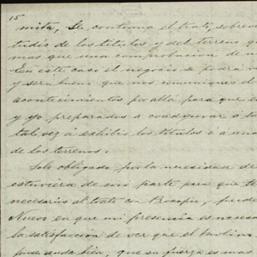 15
mita, Se continua el trato, sobre
tudio de los titulos y del terreno q
mas que una comprobacion de
En este caso el negocio se podrá
y seria bueno que nos comuniques el
acontecimientos por allá para que
y yo preparados a coadyuvar á
tal soy á exhibir los titulos é a una
de los terrenos.
Solo obligado por la necesidad de
estuviera de mi parte para que te
necesario el trato con Braga, puede
Nuevo en que mi presencia es necesa
la satisfaccion de ver que el
que anda bien, que su fuerza es mas